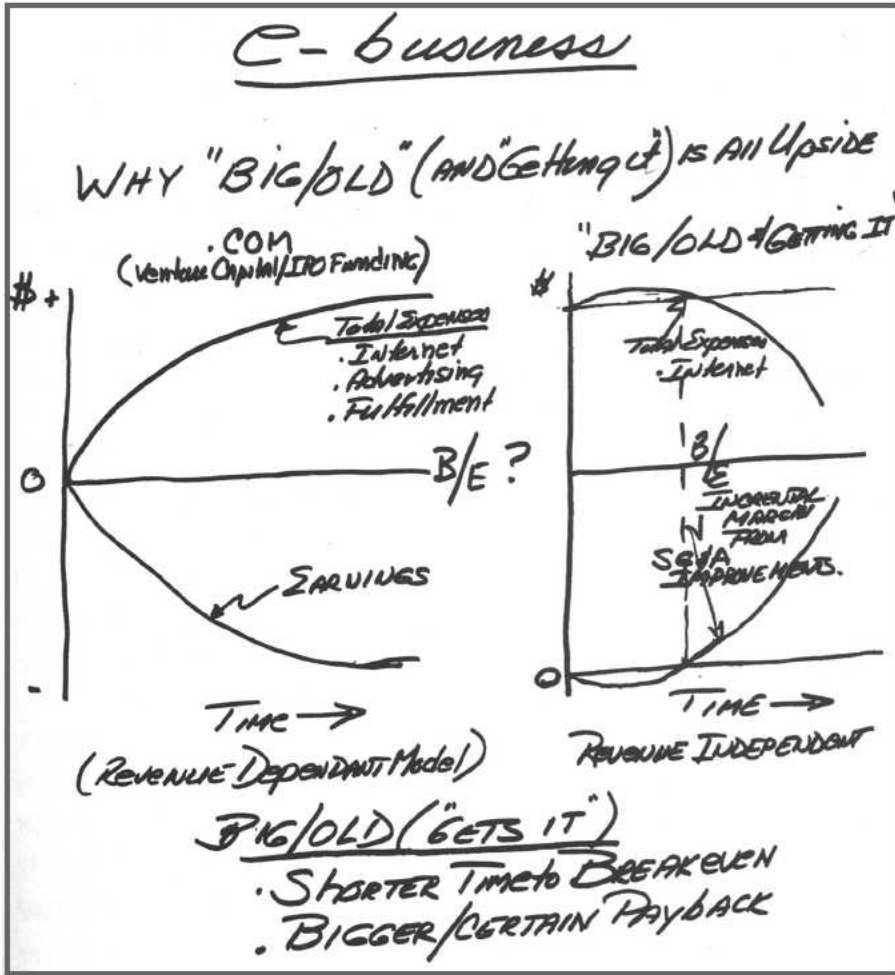 e-business
WHY "BIG/OLD" (AND "GETTING IT") IS All UpSIDE
.COM
(Venture Capital/IPO Funding)
$ +
Total Expenses
. Internet
. Advertising
. Fulfillment
0
B/E ?
EARNINGS
-
TIME →
(REVENUE-DEPENDANT Model)
"BIG/OLD & GETTING IT"
$
Total Expenses
. Internet
B/E
INCREMENTAL
MARGIN
FROM
SG&A
IMPROVEMENTS.
0
TIME →
REVENUE INDEPENDENT
BIG/OLD ("GETS IT")
. SHORTER Time to BREAKEVEN
. BIGGER/CERTAIN PAYBACK